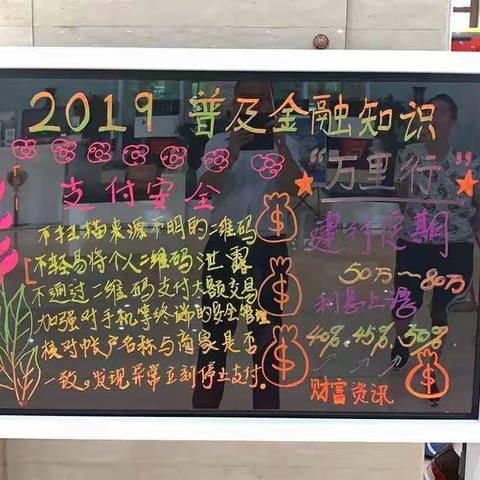 2019 普及金融知识
“万里行”
支付安全
不扫描来源不明的二维码
不轻易将个人二维码泄露
不通过二维码支付大额交易
加强对手机等终端的安全管理
核对帐户名称与商家是否
一致。发现异常立刻停止支付.
建行定期
50万~80万
利息上浮
40%.45%.50%
财富资讯